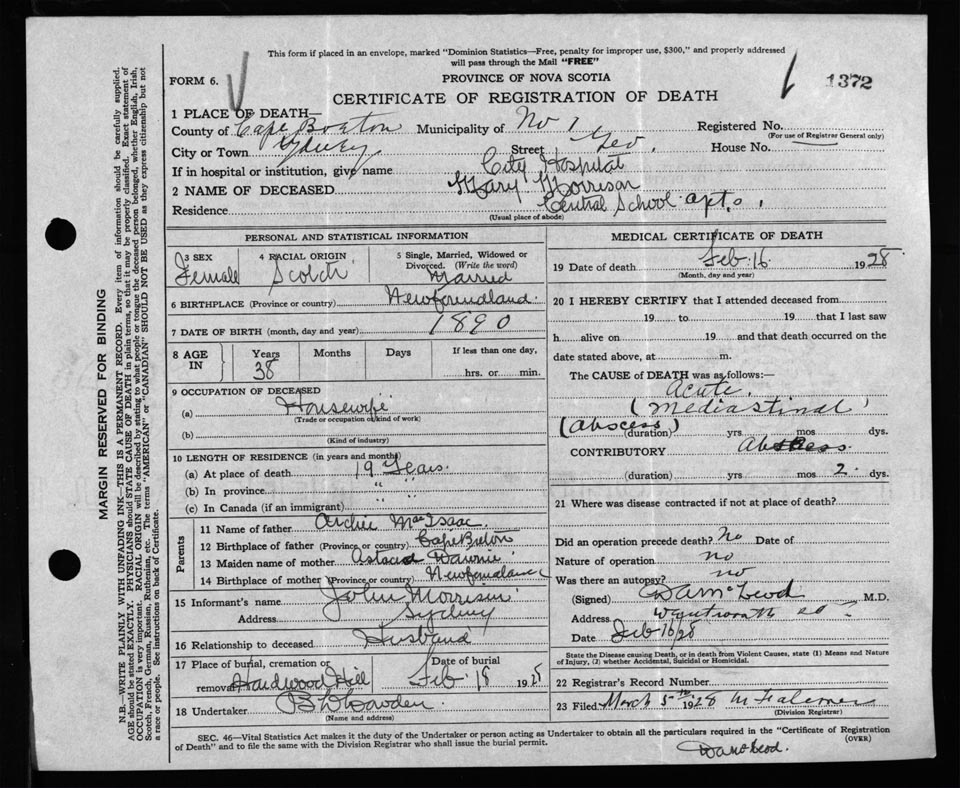 This form if placed in an envelope, marked "Dominion Statistics—Free, penalty for improper use, $300," and properly addressed
will pass through the Mail "FREE"
FORM 6.
PROVINCE OF NOVA SCOTIA
1372
CERTIFICATE OF REGISTRATION OF DEATH
1 PLACE OF DEATH—
County of Cape Breton Municipality of No 1 Registered No.
(For use of Registrar General only)
City or Town Sydney Street Geo. House No.
If in hospital or institution, give name City Hospital
2 NAME OF DECEASED Mary Morrison
Residence Central School apts.
(Usual place of abode)
PERSONAL AND STATISTICAL INFORMATION
3 SEX Female
4 RACIAL ORIGIN Scotch
5 Single, Married, Widowed or Divorced. (Write the word) Married
6 BIRTHPLACE (Province or country) Newfoundland
7 DATE OF BIRTH (month, day and year) 1890
8 AGE IN Years 38 Months Days If less than one day, hrs. or min.
9 OCCUPATION OF DECEASED
(a) Housewife
(Trade or occupation or kind of work)
(b)
(Kind of industry)
10 LENGTH OF RESIDENCE (in years and months)
(a) At place of death 19 Years.
(b) In province " "
(c) In Canada (if an immigrant) " "
Parents
11 Name of father Archie MacIsaac
12 Birthplace of father (Province or country) Cape Breton
13 Maiden name of mother
14 Birthplace of mother (Province or country) Newfoundland
15 Informant's name John Morrison
Address Sydney
16 Relationship to deceased Husband
17 Place of burial, cremation or removal Hardwood Hill Date of burial Feb 18 1928
18 Undertaker
(Name and address)
MEDICAL CERTIFICATE OF DEATH
19 Date of death Feb. 16 1928.
(Month, day and year)
20 I HEREBY CERTIFY that I attended deceased from
19 to 19 that I last saw
h alive on 19 and that death occurred on the
date stated above, at m.
The CAUSE of DEATH was as follows:—
Acute
(Mediastinal)
(abscess) (duration) yrs mos dys.
CONTRIBUTORY Abscess
(duration) yrs mos 2 dys.
21 Where was disease contracted if not at place of death?
Did an operation precede death? No Date of
Nature of operation no
Was there an autopsy? no
(Signed) D A McLeod M.D.
Address
Date Feb 16/28
State the Disease causing Death, or in death from Violent Causes, state (1) Means and Nature
of Injury, (2) whether Accidental, Suicidal or Homicidal.
22 Registrar's Record Number
23 Filed March 5th 1928
(Division Registrar)
SEC. 46—Vital Statistics Act makes it the duty of the Undertaker or person acting as Undertaker to obtain all the particulars required in the "Certificate of Registration
of Death" and to file the same with the Division Registrar who shall issue the burial permit.
(OVER)
D A McLeod.
MARGIN RESERVED FOR BINDING
N.B.—WRITE PLAINLY WITH UNFADING INK—THIS IS A PERMANENT RECORD. Every item of information should be carefully supplied.
AGE should be stated EXACTLY. PHYSICIANS should STATE CAUSE OF DEATH in plain terms, so that it may be properly classified. Exact statement of
OCCUPATION is very important. RACIAL ORIGIN will be described by stating to what people or tongue the deceased person belonged, whether English, Irish,
Scotch, French, German, Russian, Ruthenian, etc. The terms "AMERICAN" or "CANADIAN" SHOULD NOT BE USED as they express citizenship but not
a race or people. See instructions on back of Certificate.